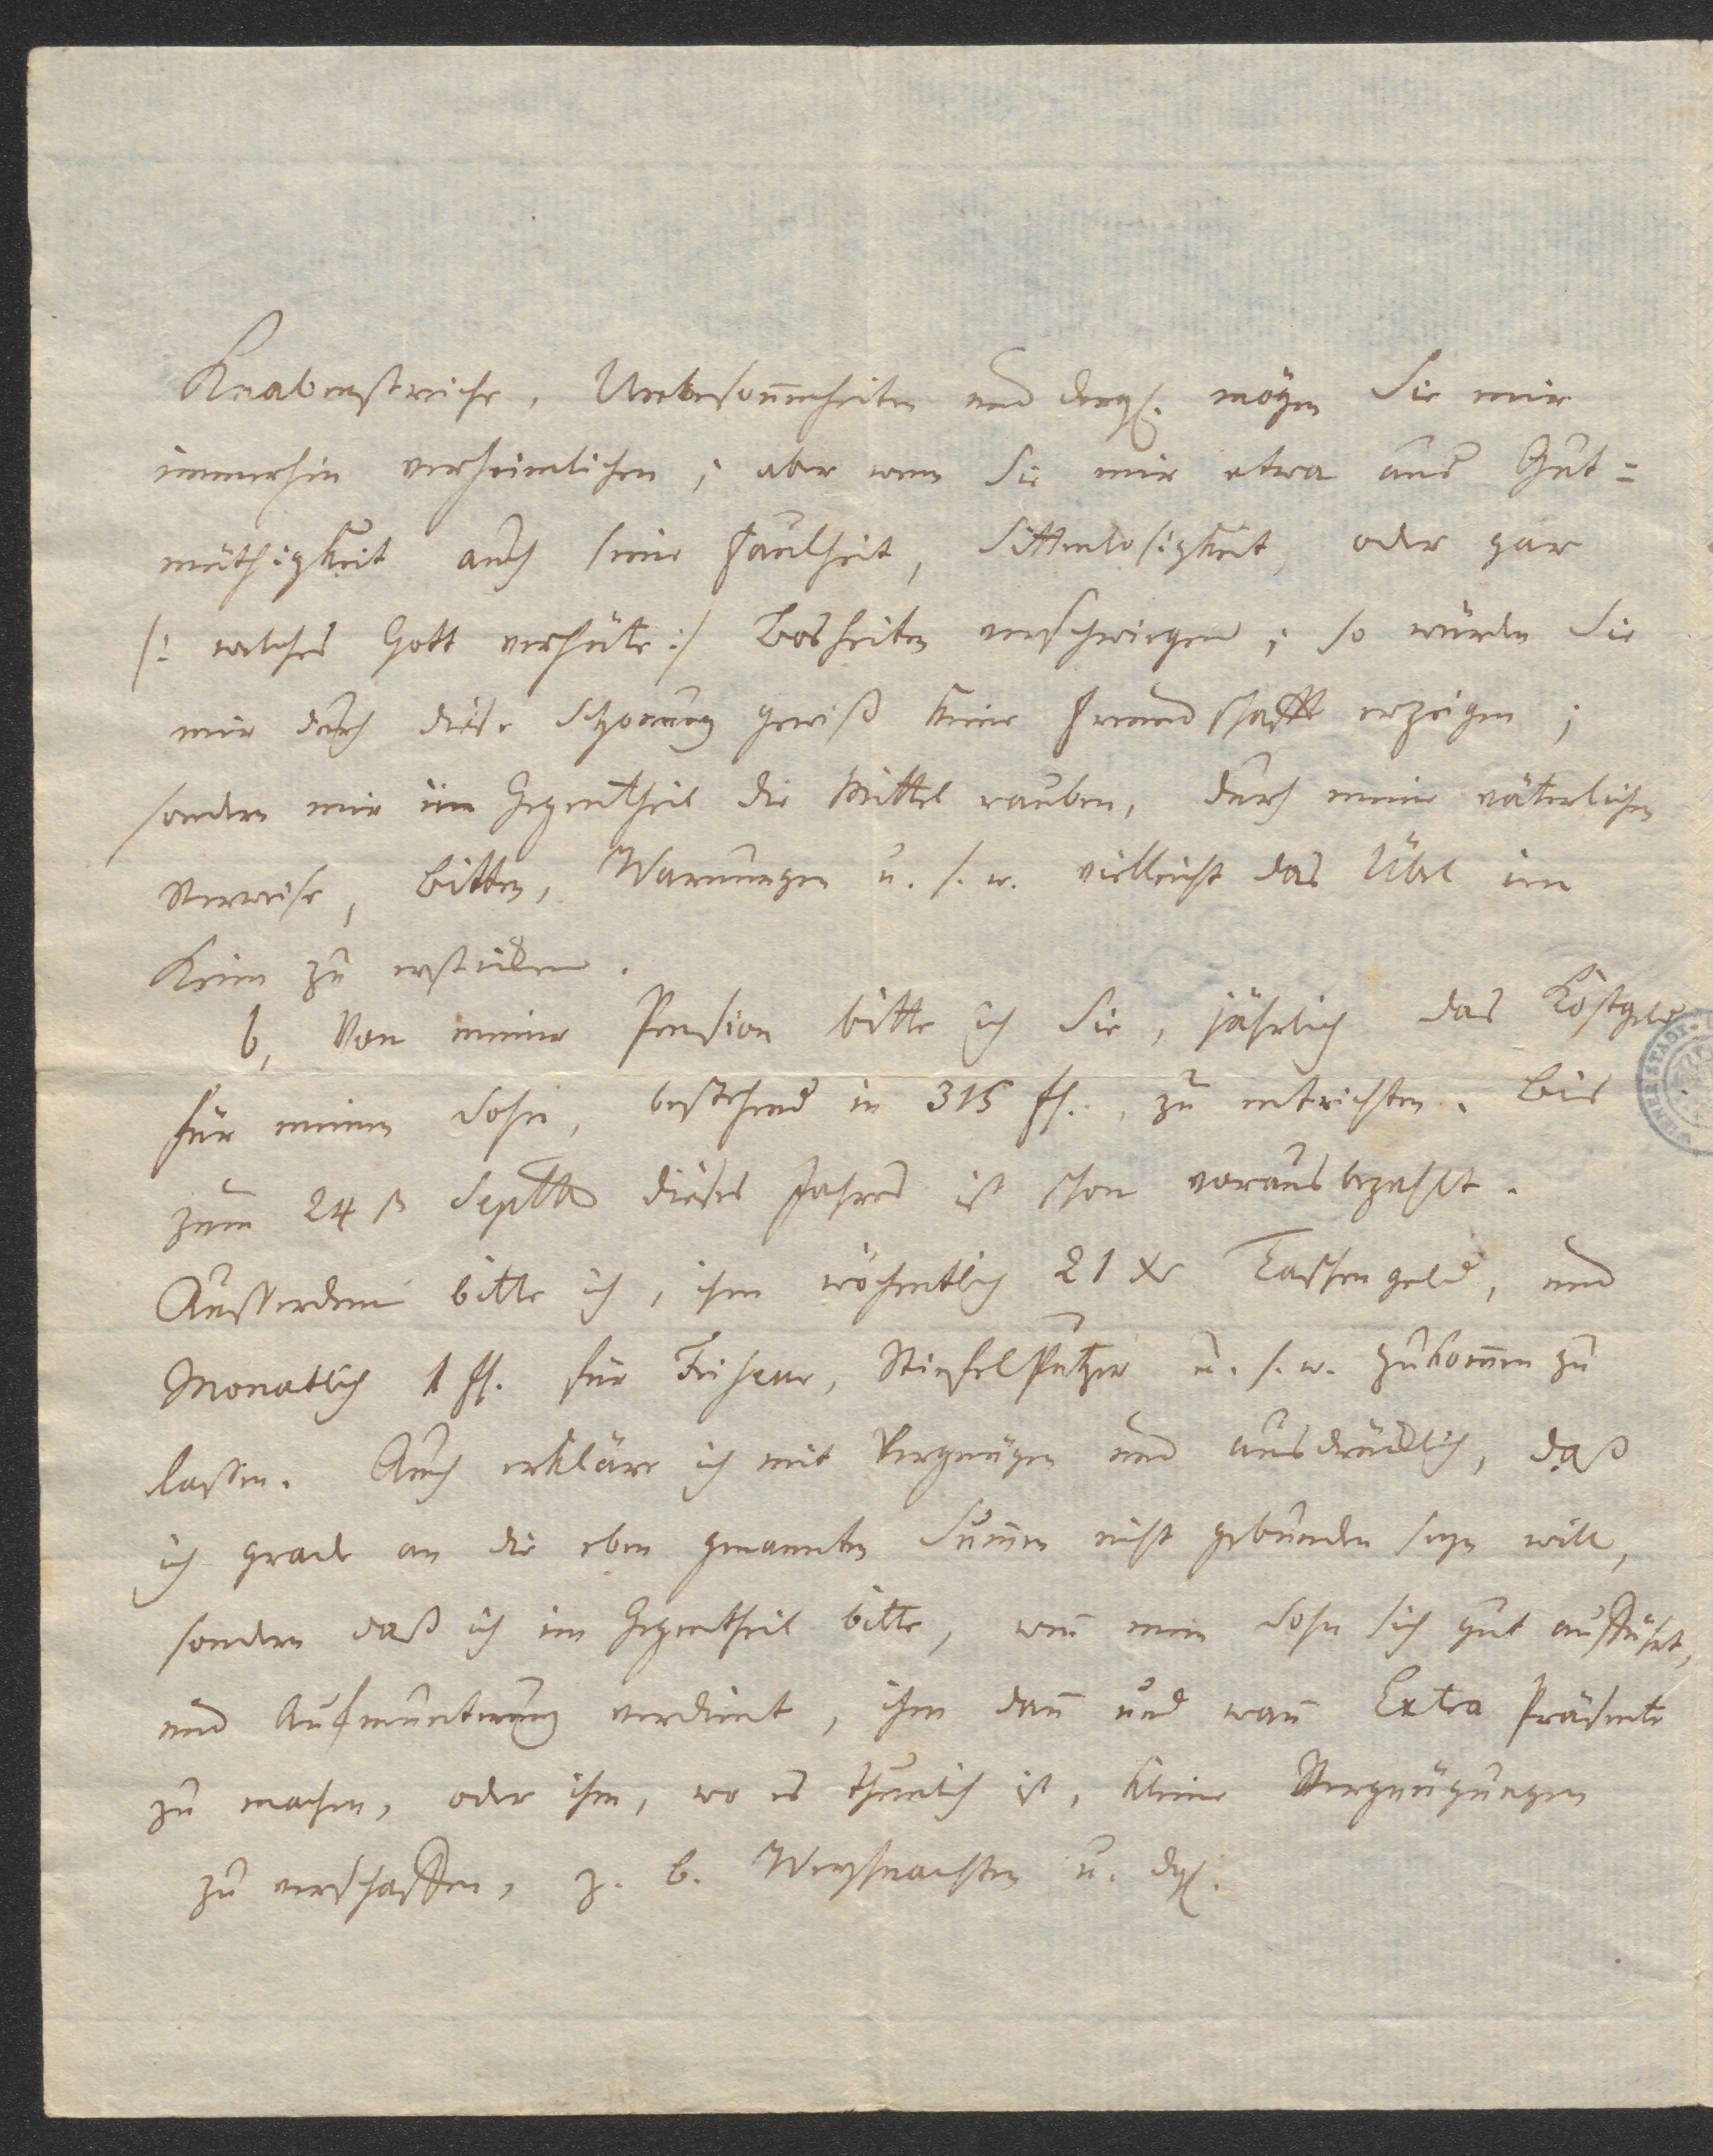 Knabenstreiche, Unbesoñenheiten und dergl. mögen Sie mir
immerhin verheimlichen; aber wenn Sie mir etwa aus Gut=
müthigkeit auch seine Faulheit, Sittenlosigkeit, oder gar
/: welches Gott verhüte :/ Bosheiten verschwiegen; so würden Sie
mir durch diese Schonung gewiß keine Freundschafft erzeigen;
sondern mir im Gegentheil die Mittel rauben, durch meine väterlichen
Verweise, Bitten, Warnungen u. s. w. vielleicht das Übel im
Keim zu ersticken.
b, Von meiner Pension bitte ich Sie, jährlich das Kostgeld
für meinen Sohn, bestehend in 315 fl., zu entrichten. Bis
zum 24 t Septbr dieses Jahres ist schon vorausbezahlt.
Ausserdem bitte ich, ihm wöchentlich 21 xr Taschengeld, und
Monatlich 1 fl. für Friseur, Stiefelputzer u. s. w. zukom̃en zu
lassen. Auch erkläre ich mit Vergnügen und ausdrücklich, daß
ich grade an die eben genannten Sum̃en nicht gebunden seyn will,
sondern daß ich im Gegentheil bitte, weñ mein Sohn sich gut aufführt,
und Aufmunterung verdient, ihm dañ und wañ Extra Präsente
zu machen, oder ihm, wo es thunlich ist, kleine Vergnügungen
zu verschaffen, z. B. Weyhnachten u. dgl.
WIENER STADT